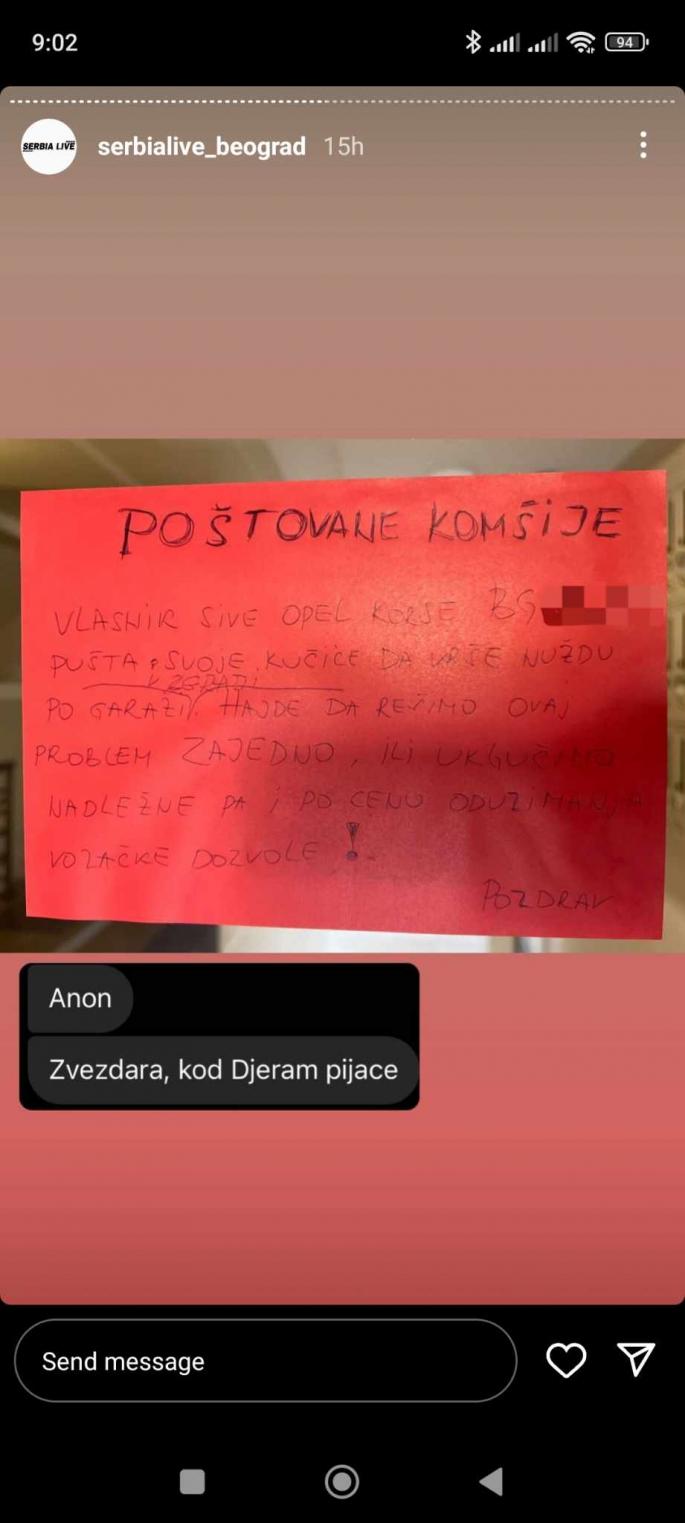 9:02
94
SERBIA LIVE
serbialive_beograd 15h
POŠTOVANE KOMŠIJE
VLASNIK SIVE OPEL KORSE BG
PUŠTA SVOJE KUČICE DA VRŠE NUŽDU
V ZGRADI
PO GARAŽI. HAJDE DA REŠIMO OVAJ
PROBLEM ZAJEDNO, ILI UKLJUČIMO
NADLEŽNE PA I PO CENU ODUZIMANJA
VOZAČKE DOZVOLE!
POZDRAV
Anon
Zvezdara, kod Djeram pijace
Send message